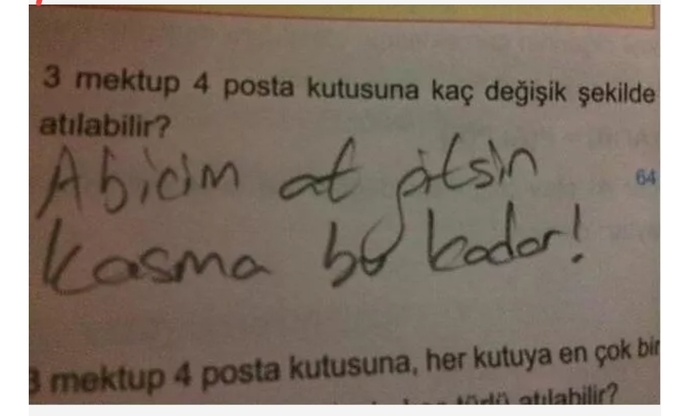 3 mektup 4 posta kutusuna kaç değişik şekilde
atılabilir?
Abicim at gitsin
64
kasma bu kadar!
3 mektup 4 posta kutusuna, her kutuya en çok bir
türlü atılabilir?